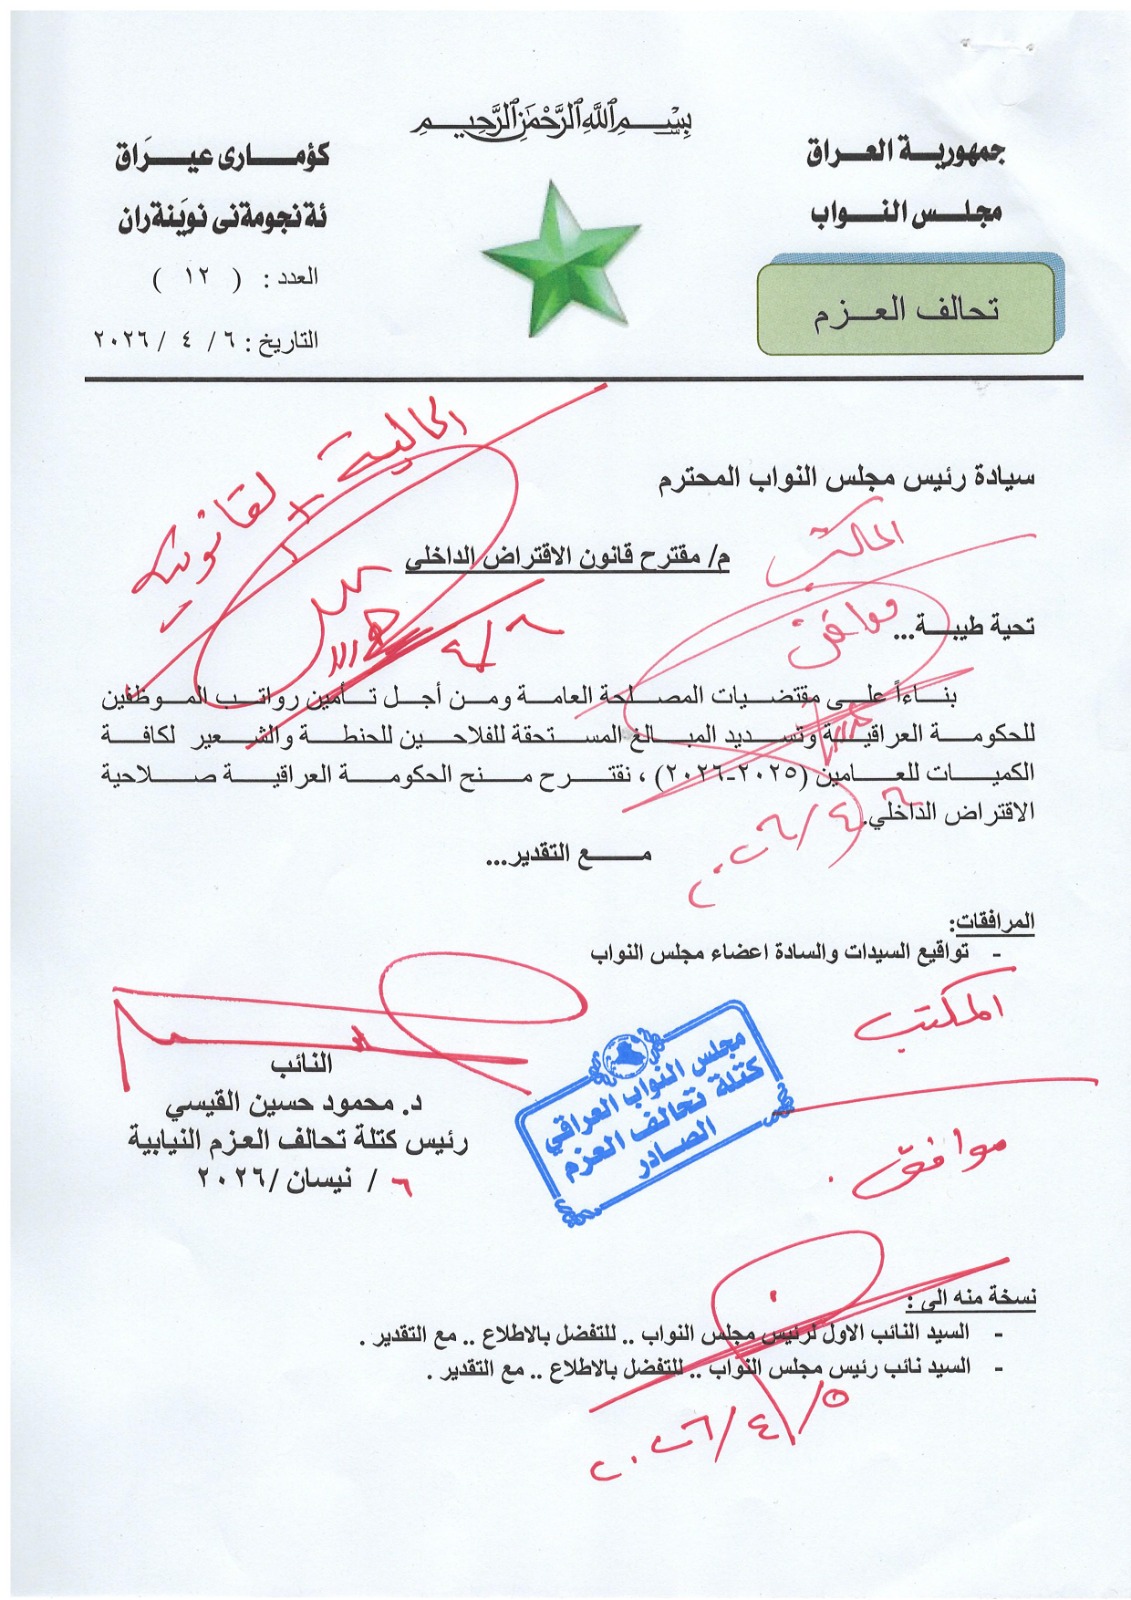 بِسْمِ اللَّهِ الرَّحْمَٰنِ الرَّحِيمِ
جمهورية العراق
مجلس النواب
تحالف العزم
كؤماری عیرَاق
ئةنجومةنی نویَنةران
العدد : ( ١٢ )
التاريخ : ٦ / ٤ / ٢٠٢٦
المالية
القانونية
سيادة رئيس مجلس النواب المحترم
المكتب
م/ مقترح قانون الاقتراض الداخلي
موافق
تحية طيبة...
٤/٦
بناءاً على مقتضيات المصلحة العامة ومن أجل تأمين رواتب الموظفين
للحكومة العراقية وتسديد المبالغ المستحقة للفلاحين للحنطة والشعير لكافة
الكميات للعامين (٢٠٢٥-٢٠٢٦) ، نقترح منح الحكومة العراقية صلاحية
الاقتراض الداخلي.
٢٠٢٦/٤/٦
مع التقدير...
المرافقات:
- تواقيع السيدات والسادة اعضاء مجلس النواب
المكتب
موافق
النائب
د. محمود حسين القيسي
رئيس كتلة تحالف العزم النيابية
٦ / نيسان /٢٠٢٦
مجلس النواب العراقي
كتلة تحالف العزم
الصادر
نسخة منه الى :
- السيد النائب الاول لرئيس مجلس النواب .. للتفضل بالاطلاع .. مع التقدير .
- السيد نائب رئيس مجلس النواب .. للتفضل بالاطلاع .. مع التقدير .
٢٠٢٦/٤/٥